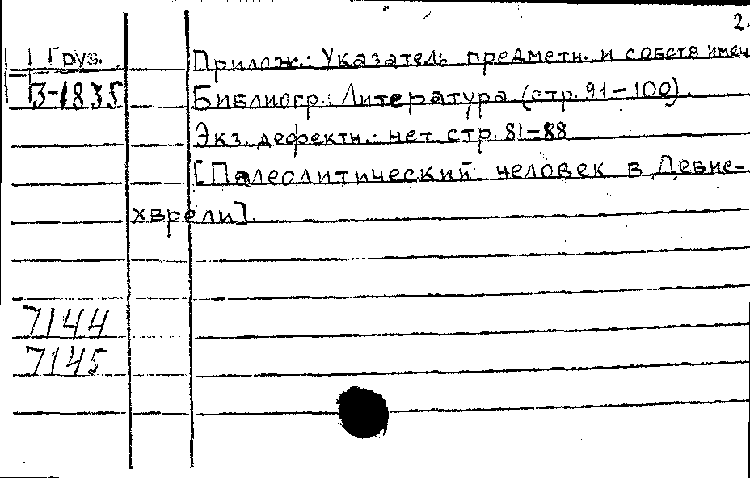 2.
Груз. Прилож.: Указатель предметн. и собств имен
3-1835 Библиогр.: Литература (стр. 91-100).
Экз. дефектн.: нет стр. 81-88
[Палеолитический человек в Девис-
хврели].
7144
7145